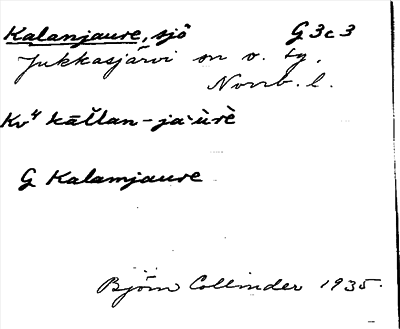 Kalanjaure, sjö G 3c3
Jukkasjärvi sn o. tg,
Norrb. l.
Kv⁴ kāl̆lan-jaˑùrè
G Kalamjaure
Björn Collinder 1935.